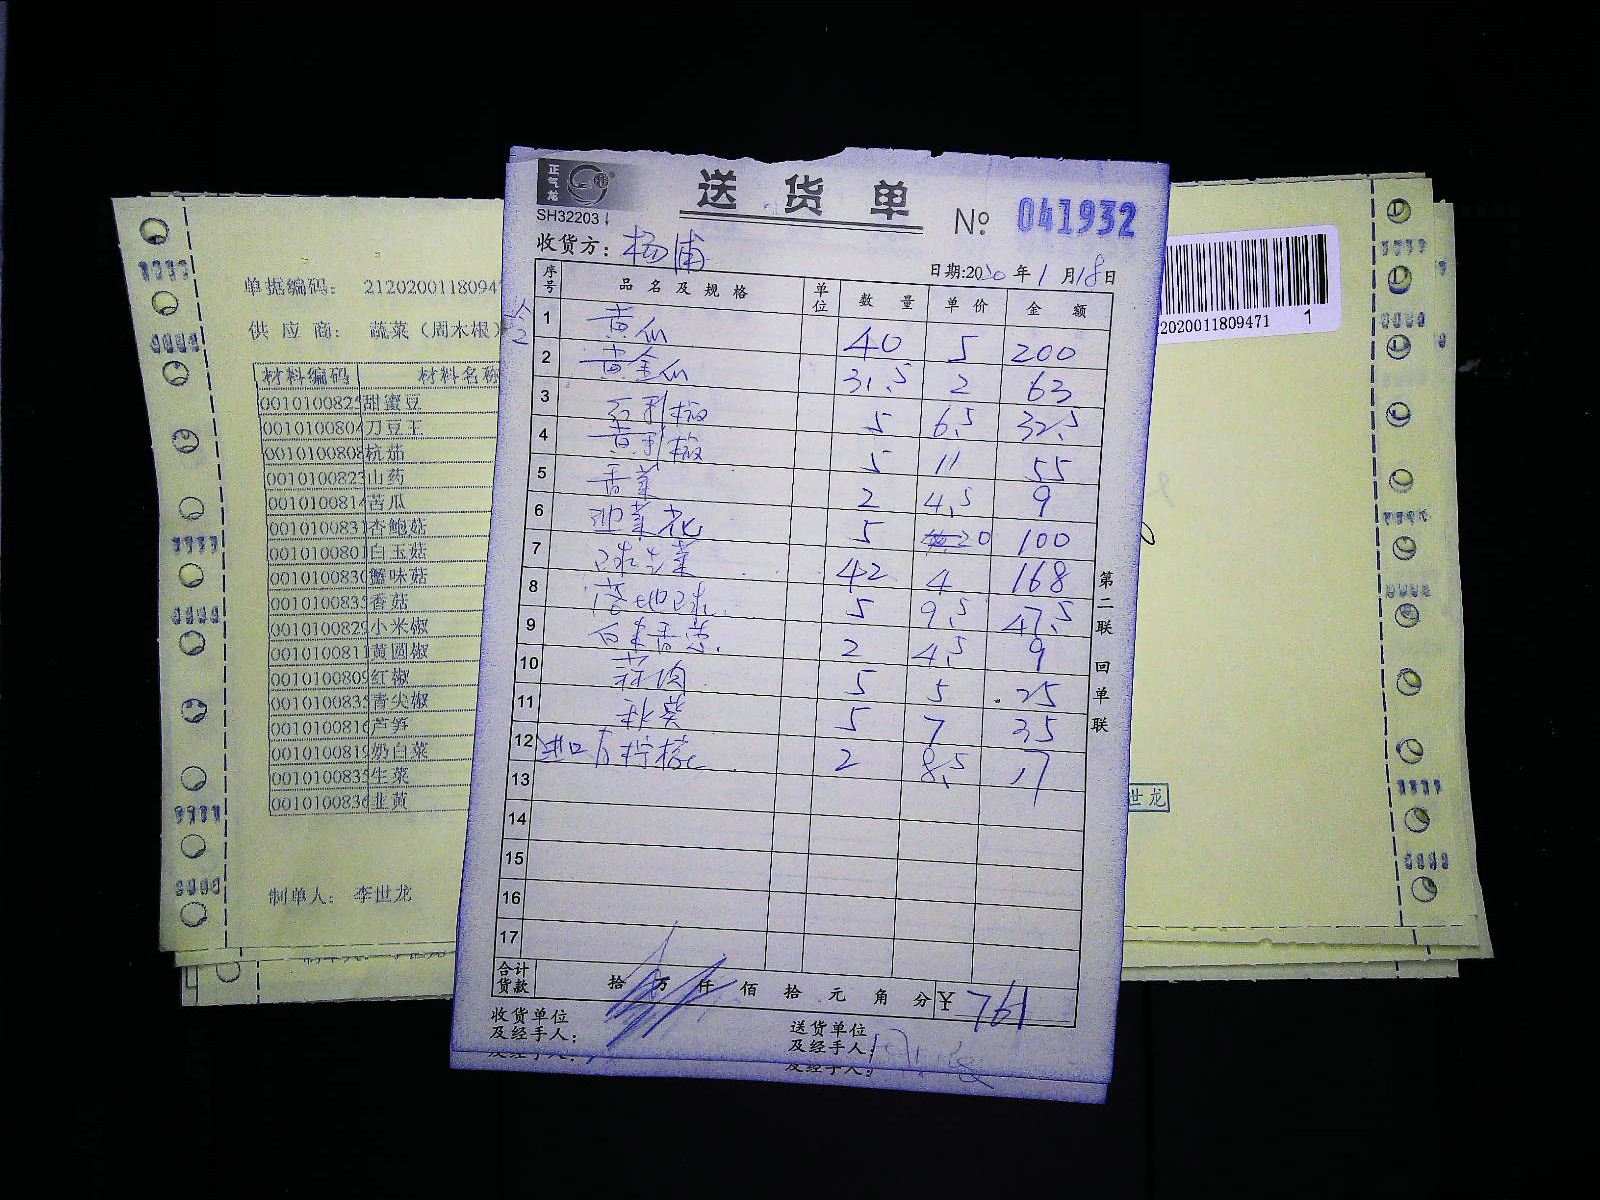 正气龙
送货单
SH32203
№ 041932
收货方：杨浦
日期:2020年1月18日
序号 品名及规格 单位 数量 单价 金额
1 黄瓜 40 5 200
2 黄金瓜 31.5 2 63
3 红彩椒 5 6.5 32.5
4 黄彩椒 5 11 55
5 香菜 2 4.5 9
6 迎菜花 5 20 100
7 球生菜 42 4 168
8 5 9.5 47.5
9 2 4.5 9
10 5 5 25
11 秋葵 5 7 35
12 进口青柠檬 2 8.5 17
13
14
15
16
17
合计货款 拾 万 仟 佰 拾 元 角 分 ¥ 761
收货单位及经手人：
送货单位及经手人：
第二联 回单联
及经手人：
及经手人：
单据编码： 2120200118094
供应商： 蔬菜（周木根）
材料编码 材料名称
001010082 甜蜜豆
001010080 刀豆王
001010080 杭茄
001010082 山药
001010081 苦瓜
001010083 杏鲍菇
001010080 白玉菇
001010083 蟹味菇
001010083 香菇
001010082 小米椒
001010081 黄圆椒
001010080 红椒
001010083 青尖椒
001010081 芦笋
001010081 奶白菜
001010083 生菜
001010083 韭黄
制单人： 李世龙
2020011809471 1
世龙